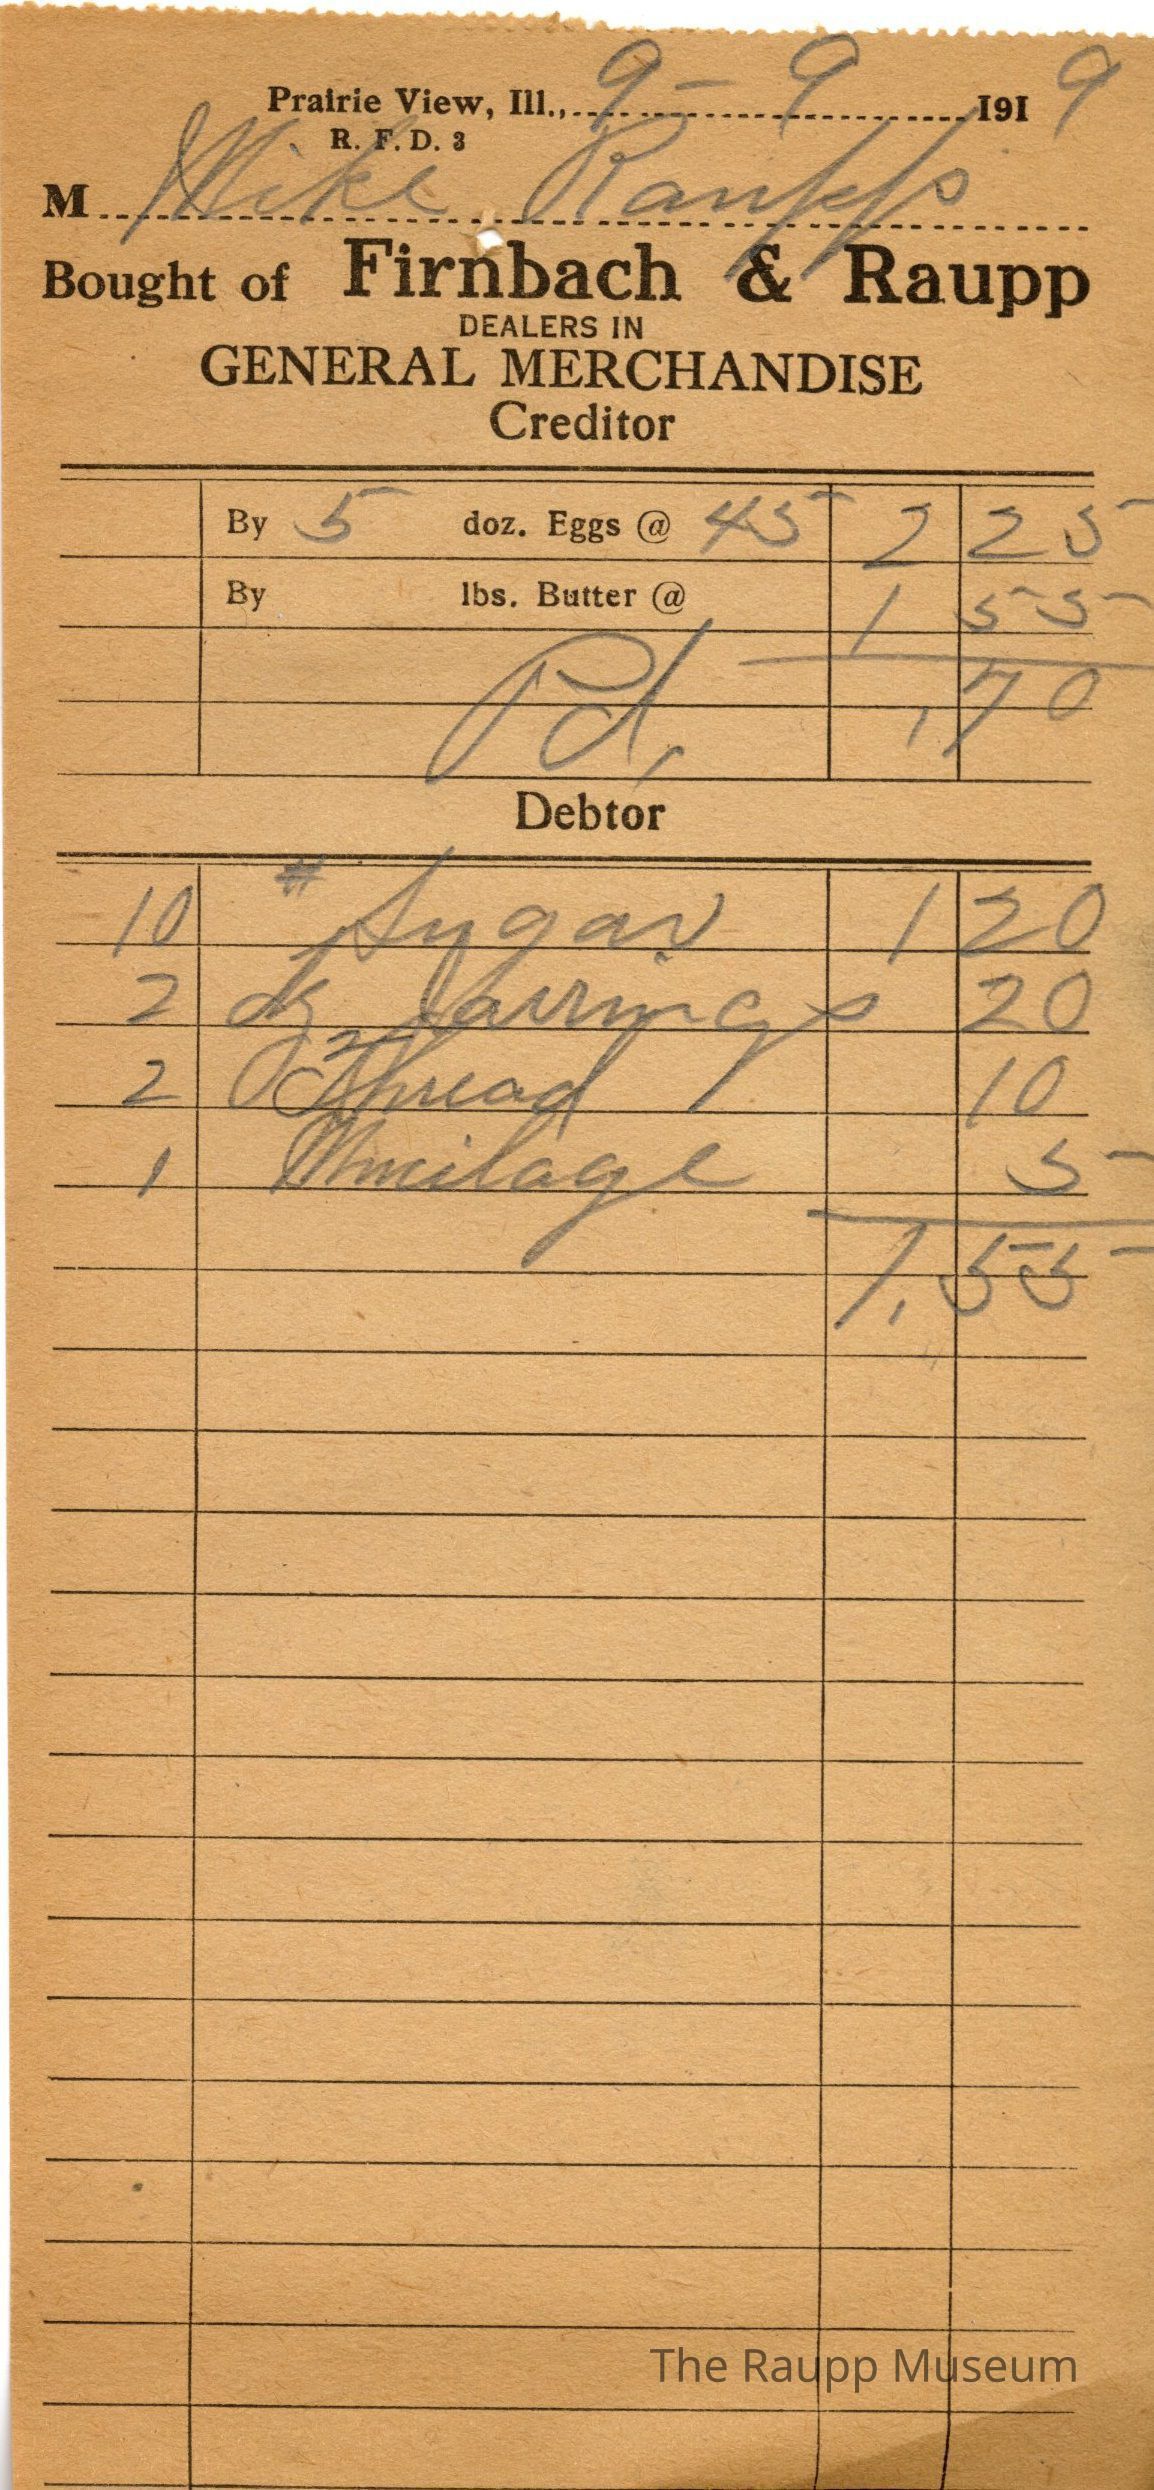 Prairie View, Ill., 9-9 1919
R. F. D. 3
M Mike Raupp
Bought of Firnbach & Raupp
DEALERS IN
GENERAL MERCHANDISE
Creditor
By 5 doz. Eggs @ 45 2 25
By lbs. Butter @ 1 55
Pd. .70
Debtor
10 # Sugar 1 20
2 dz Jar rings 20
2 Thread 10
1 Mucilage 5
1.55
The Raupp Museum